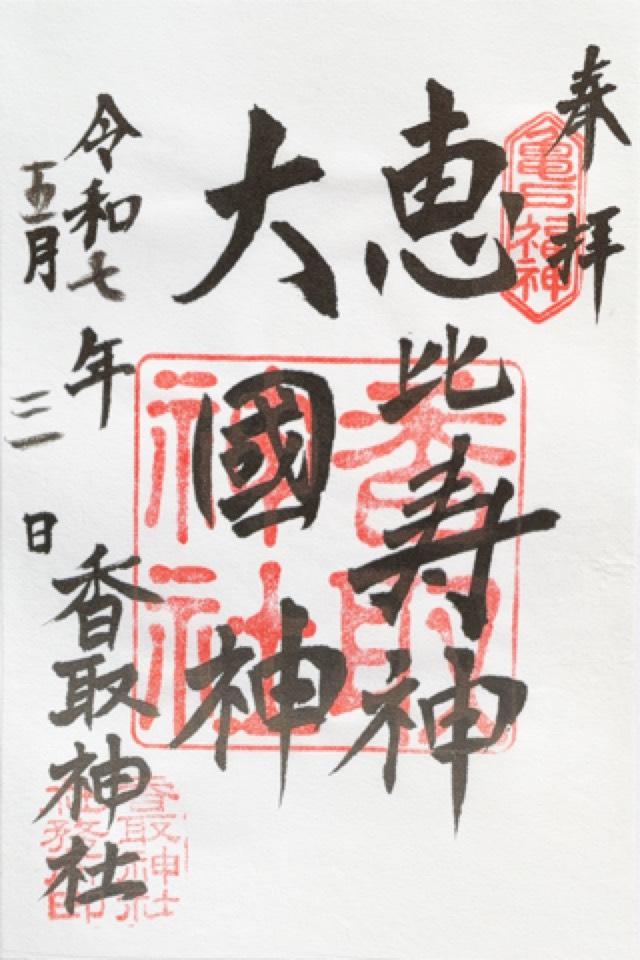 奉拝
亀戸福神
恵比寿神
大國神
香取神社
令和七年
五月三日
香取神社
香取神社社務所印